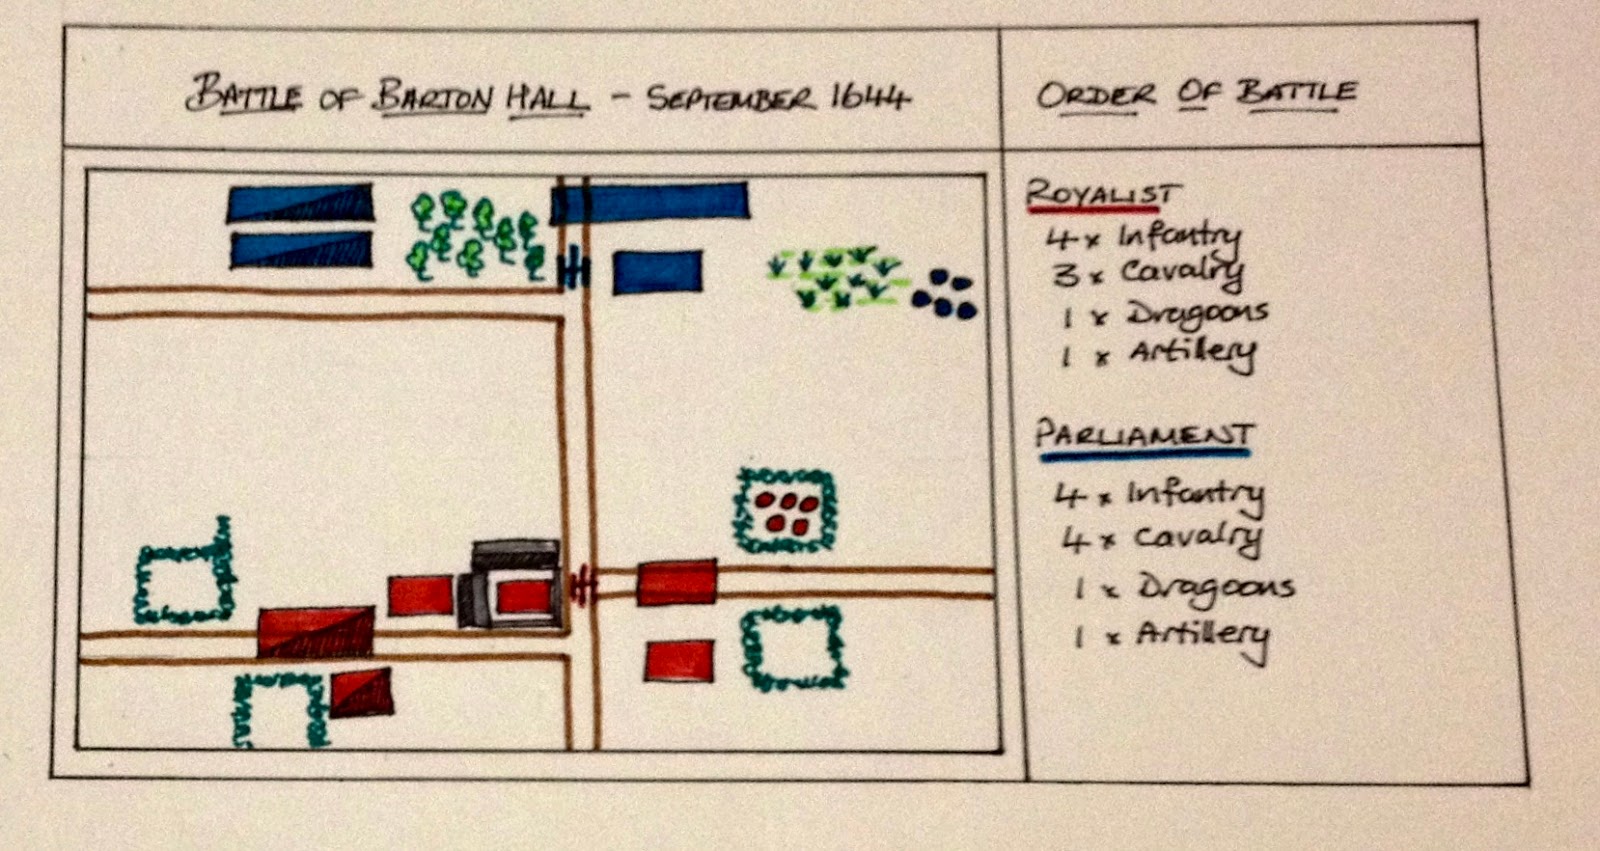 BATTLE OF BARTON HALL - SEPTEMBER 1644
ORDER OF BATTLE
ROYALIST
4 x Infantry
3 x Cavalry
1 x Dragoons
1 x Artillery
PARLIAMENT
4 x Infantry
4 x Cavalry
1 x Dragoons
1 x Artillery